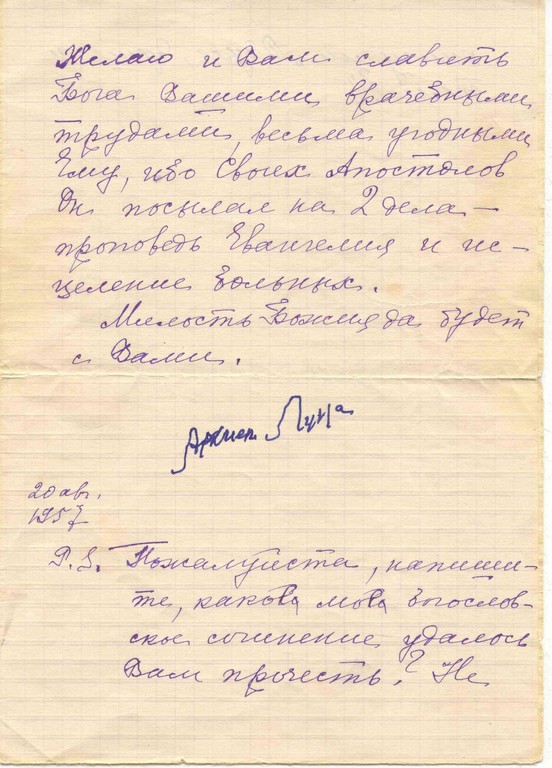 Желаю и Вам славить
Бога Вашими врачебными
трудами, весьма угодными
Ему, ибо Своих Апостолов
Он посылал на 2 дела —
проповедь Евангелия и ис-
целение больных.
Милость Божия да будет
с Вами.
Архиеп. Лука
20 авг.
1957
P.S. Пожалуйста, напиши-
те, какова моя богослов-
ское сочинение удалось
Вам прочесть? Не